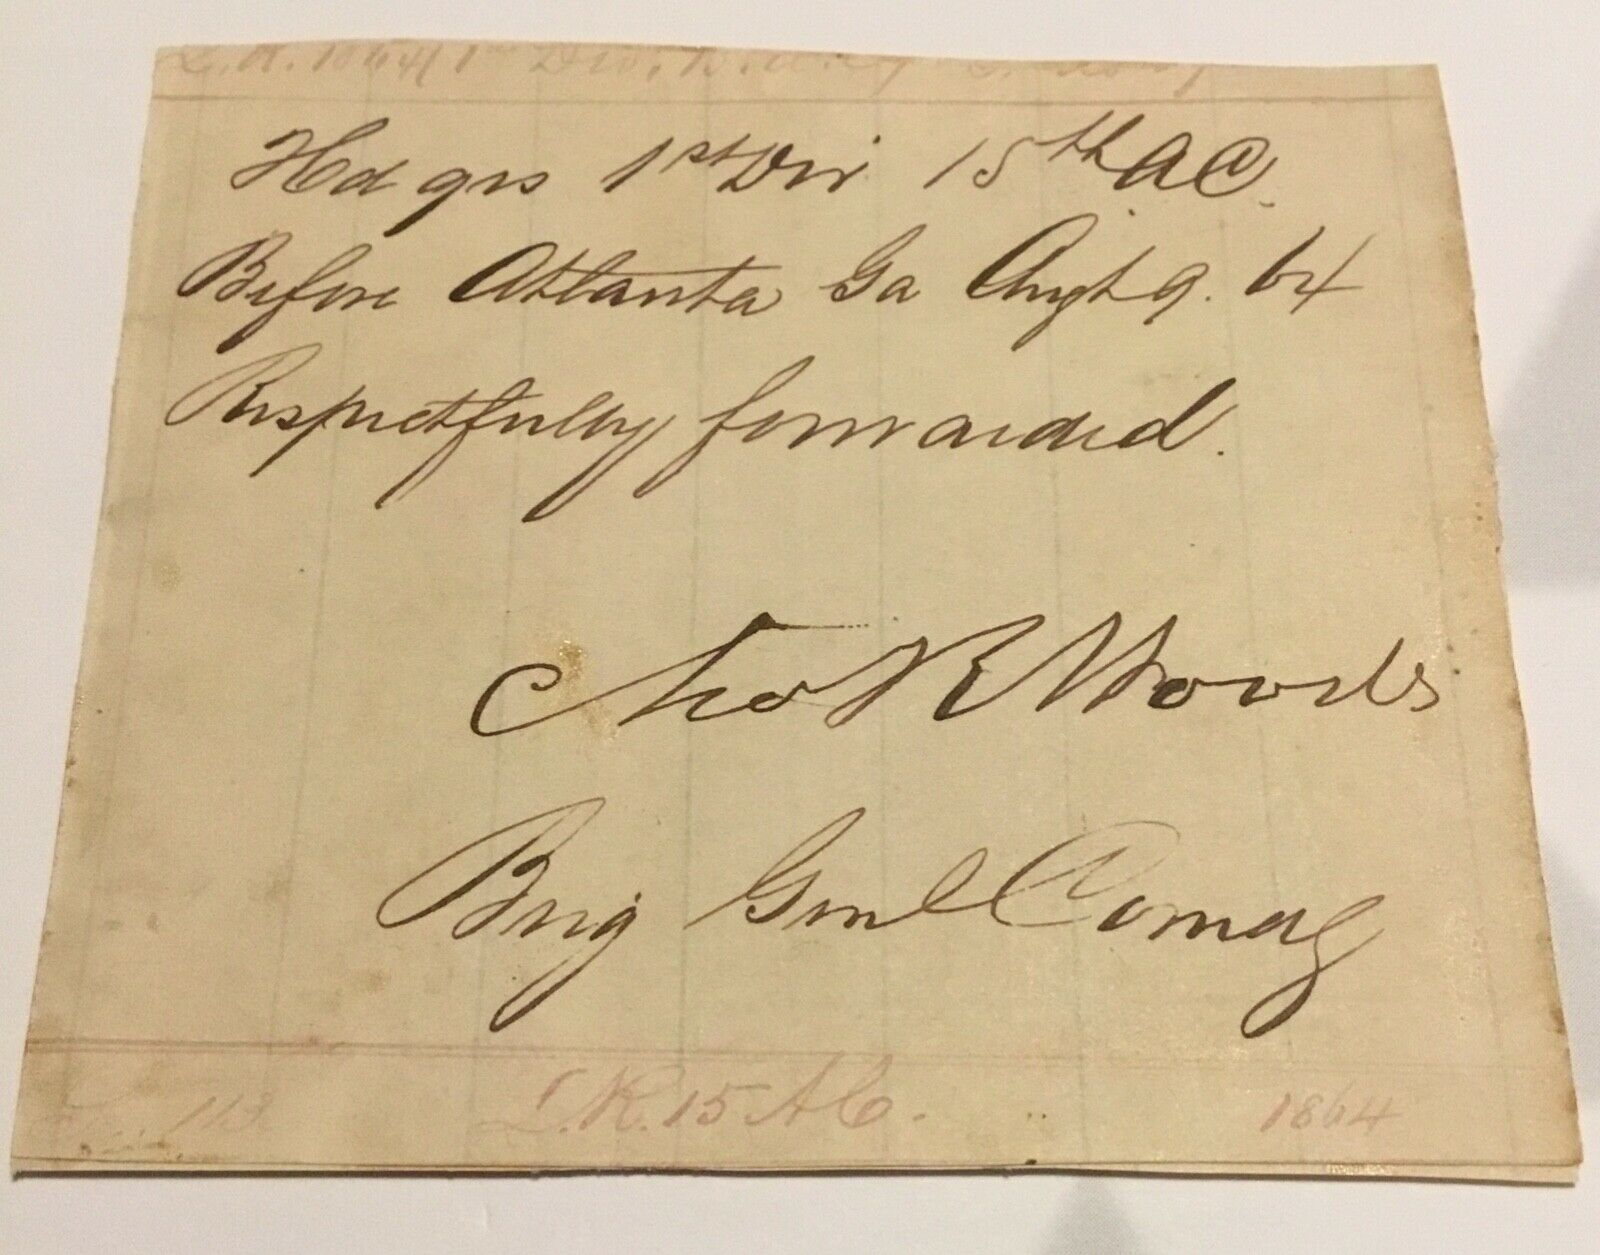 L.R. 1864 1st Div.
Hd qrs 1st Div 15th A C.
Before Atlanta Ga Augt 9. 64
Respectfully forwarded.
Chas R Woods
Brig Genl Comdg
113 L.R. 15 A C. 1864